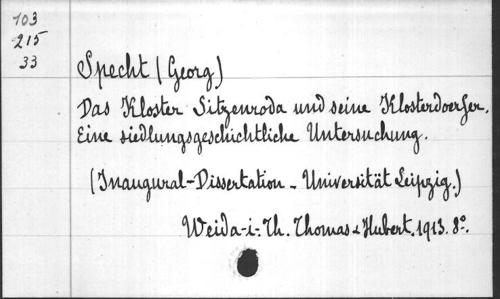 103
215
33
Specht (Georg)
Das Kloster Sitzenroda und seine Klosterdoerfer.
Eine siedlungsgeschichtliche Untersuchung.
(Inaugural-Dissertation - Universität Leipzig.)
Weida-i-Th. Thomas & Hubert. 1913. 8°.